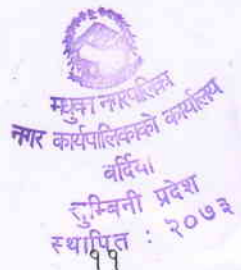 मधुवन नगरपालिका
नगर कार्यपालिकाको कार्यालय
बर्दिया
लुम्बिनी प्रदेश
स्थापित : २०७३
११